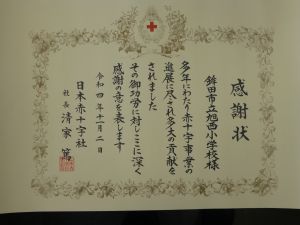 感謝状
鉾田市立旭西小学校様
多年にわたり赤十字事業の
進展に尽され多大の貢献を
されました
その御功労に対しここに深く
感謝の意を表します
令和四年十一月二日
日本赤十字社
社長 清家 篤